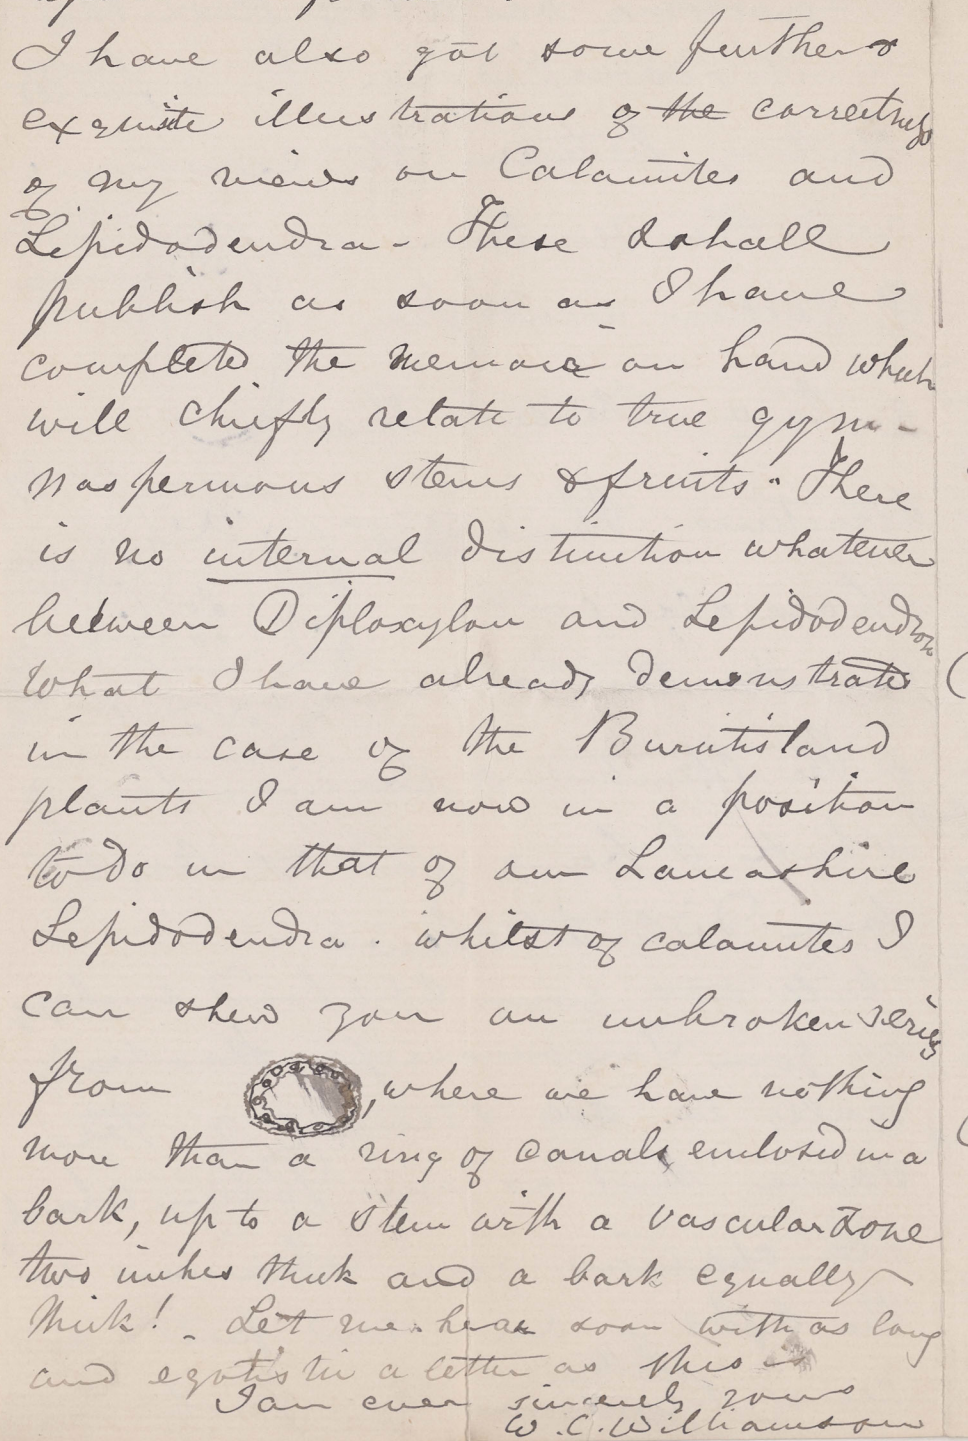 I have also got some further &
exquisite illustrations of the correctness
of my views on Calamites and
Lepidodendra - These I shall
publish as soon as I have
completed the memoir on hand which
will chiefly relate to true gym-
nospermous stems & fruits. There
is no internal distinction whatever
between Diploxylon and Lepidodendron
What I have already demonstrated
in the case of the Burntisland
plants I am now in a position
to do in that of our Lancashire
Lepidodendra. whilst of calamites I
can shew you an unbroken series
from , where we have nothing
more than a ring of canals enclosed in a
bark, up to a stem with a vascular zone
two inches thick and a bark equally
thick! - Let me hear soon with as long
and egotistic a letter as this is
I am ever sincerely yours
W. C. Williamson